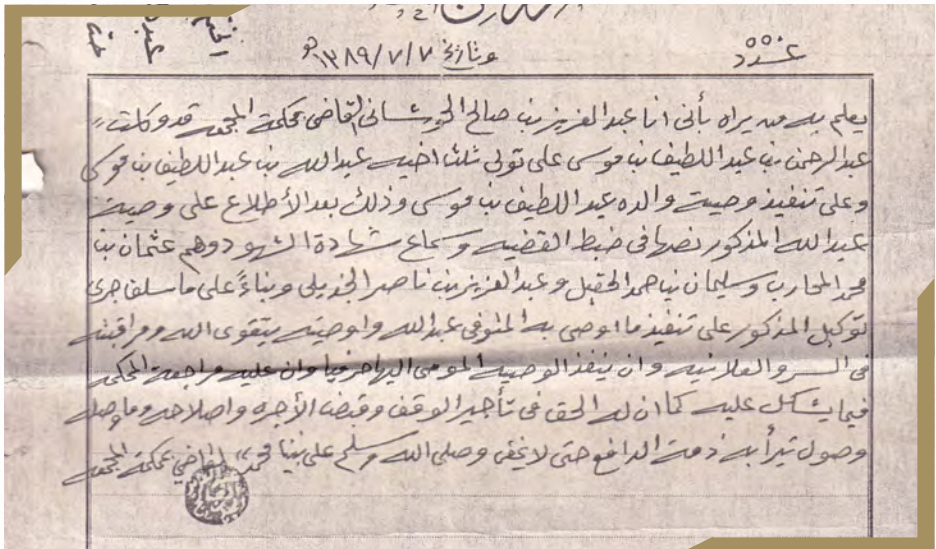 عدد
وتاريخ ١٣٨٩/٧/٧ هـ
يعلم به من يراه بأني انا عبد العزيز بن صالح القاضي بمحكمة المجمعه قد وكلت
عبد الرحمن بن عبد اللطيف بن موسى على تولي ثلث اخيه عبد الله بن عبد اللطيف بن موسى
وعلى تنفيذ وصية والده عبد اللطيف بن موسى وذلك بعد الأطلاع على وصية
عبد الله المذكور نصها في ضبط القضيه وسماع شهادة الشهود وهم عثمان بن
محمد المحارب وسليمان بن احمد الحقيل وعبد العزيز بن ناصر الخديلي وبناءً على ما سلف جرى
توكيل المذكور على تنفيذ ما اوصى به المتوفى عبد الله واوصيته بتقوى الله ومراقبته
في السر والعلانيه وان ينفذ الوصية المومى اليها حرفيا وان عليه مراجعة المحكمه
فيما يشكل عليه كما ان له الحق في تأجير الوقف وقبض الأجره واصلاحه وما وصله
وصول تبرأ به ذمة الدافع حتى لا يخفى وصلى الله وسلم على نبينا محمد القاضي بمحكمة المجمعه